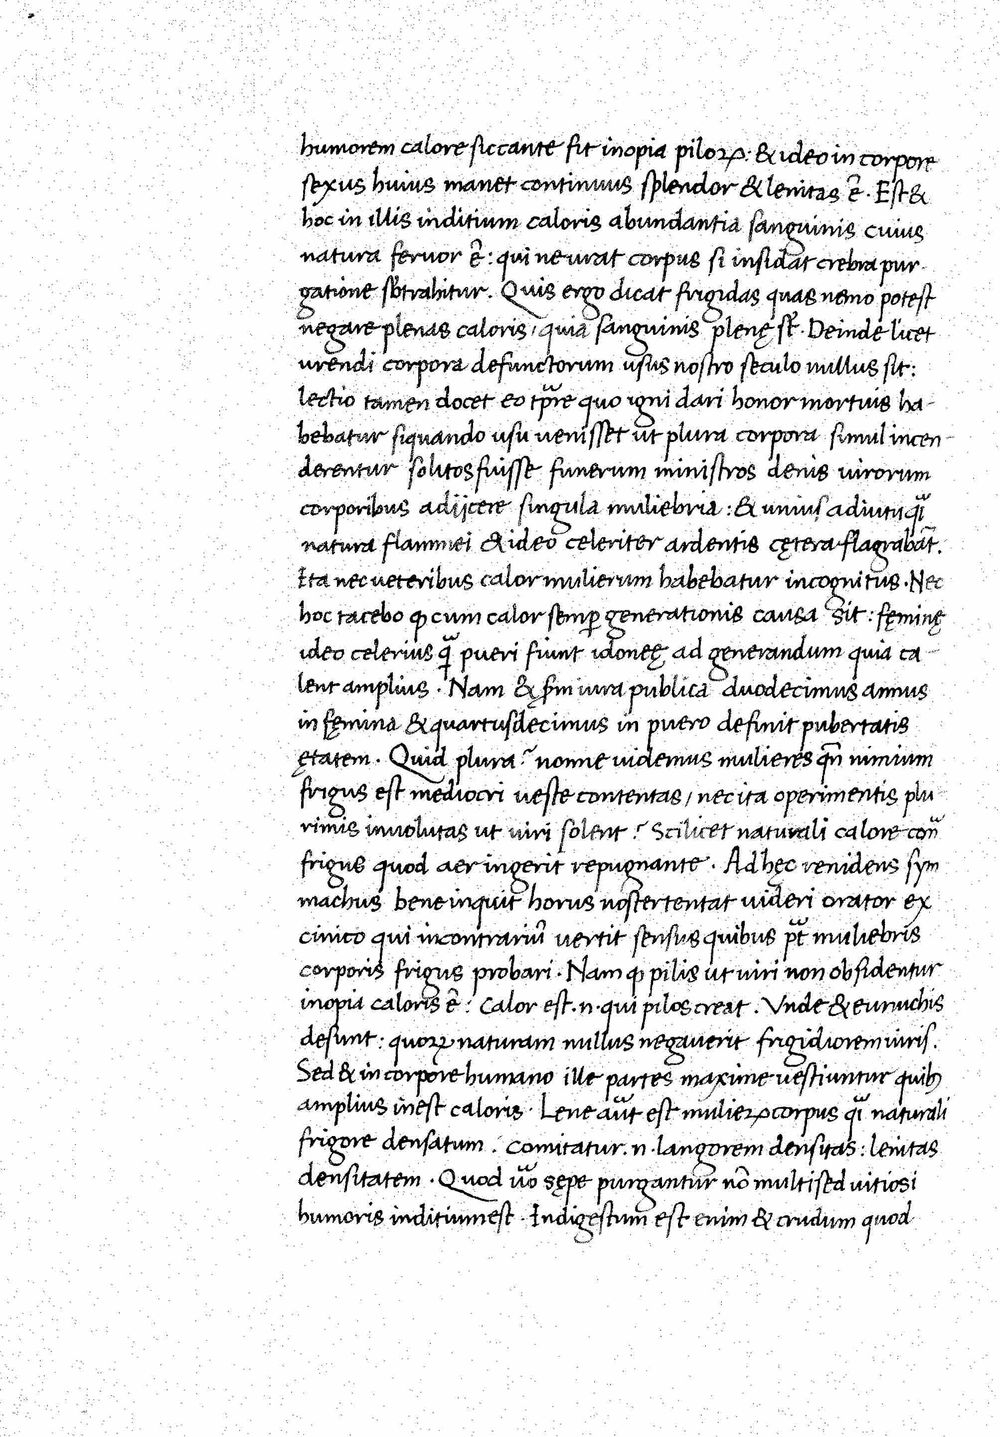 humorem calore siccante fit inopia piloꝝ: & ideo in corpore
sexus huius manet continuus splendor & lenitas ē. Est &
hoc in illis inditium caloris abundantia sanguinis cuius
natura feruor ē: qui ne urat corpus si insidat crebra pur
gatione sb̄trahitur. Quis ergo dicat frigidas quas nemo potest
negare plenas caloris, quia sanguinis plenę st̄. Deinde licet
urendi corpora defunctorum usus nostro seculo nullus sit:
lectio tamen docet eo tp̄re quo igni dari honor mortuis ha-
bebatur siquando usu uenisset ut plura corpora simul incen-
derentur solitos fuisse funerum ministros denis uirorum
corporibus adijcere singula muliebria: & unius adiutu qͣi
natura flammei & ideo celeriter ardentis cętera flagrabāt.
Ita nec ueteribus calor mulierum habebatur incognitus. Nec
hoc tacebo ꝙ cum calor semꝑ generationis causa sit: fęminę
ideo celerius qͣ̄ pueri fiunt idoneę ad generandum quia ca-
lent amplius. Nam & ẜm iura publica duodecimus annus
in fęmina & quartusdecimus in puero definit pubertatis
ętatem. Quid plura? nonne uidemus mulieres qn̄ nimium
frigus est mediocri ueste contentas, nec ita operimentis plu-
rimis inuolutas ut uiri solent? Scilicet naturali calore con̄
frigus quod aer ingerit repugnante. Ad hęc renidens sym
machus bene inquit horus noster tentat uideri orator ex
cinico qui in contrariū uertit sensus quibus pͣt muliebris
corporis frigus probari. Nam ꝙ pilis ut uiri non obsidentur
inopia caloris ē: Calor est .n. qui pilos creat. Vnde & eunuchis
desunt: quoꝝ naturam nullus negauerit frigidiorem uiris.
Sed & in corpore humano ille partes maxime uestiuntur quibꝫ
amplius inest caloris. Lene aūt est mulieꝝ corpus qͣi naturali
frigore densatum. Comitatur .n. langorem densitas: lenitas
densitatem. Quod ūo sępe purgantur nō multi sed uitiosi
humoris inditium est. Indigestum est enim & crudum quod